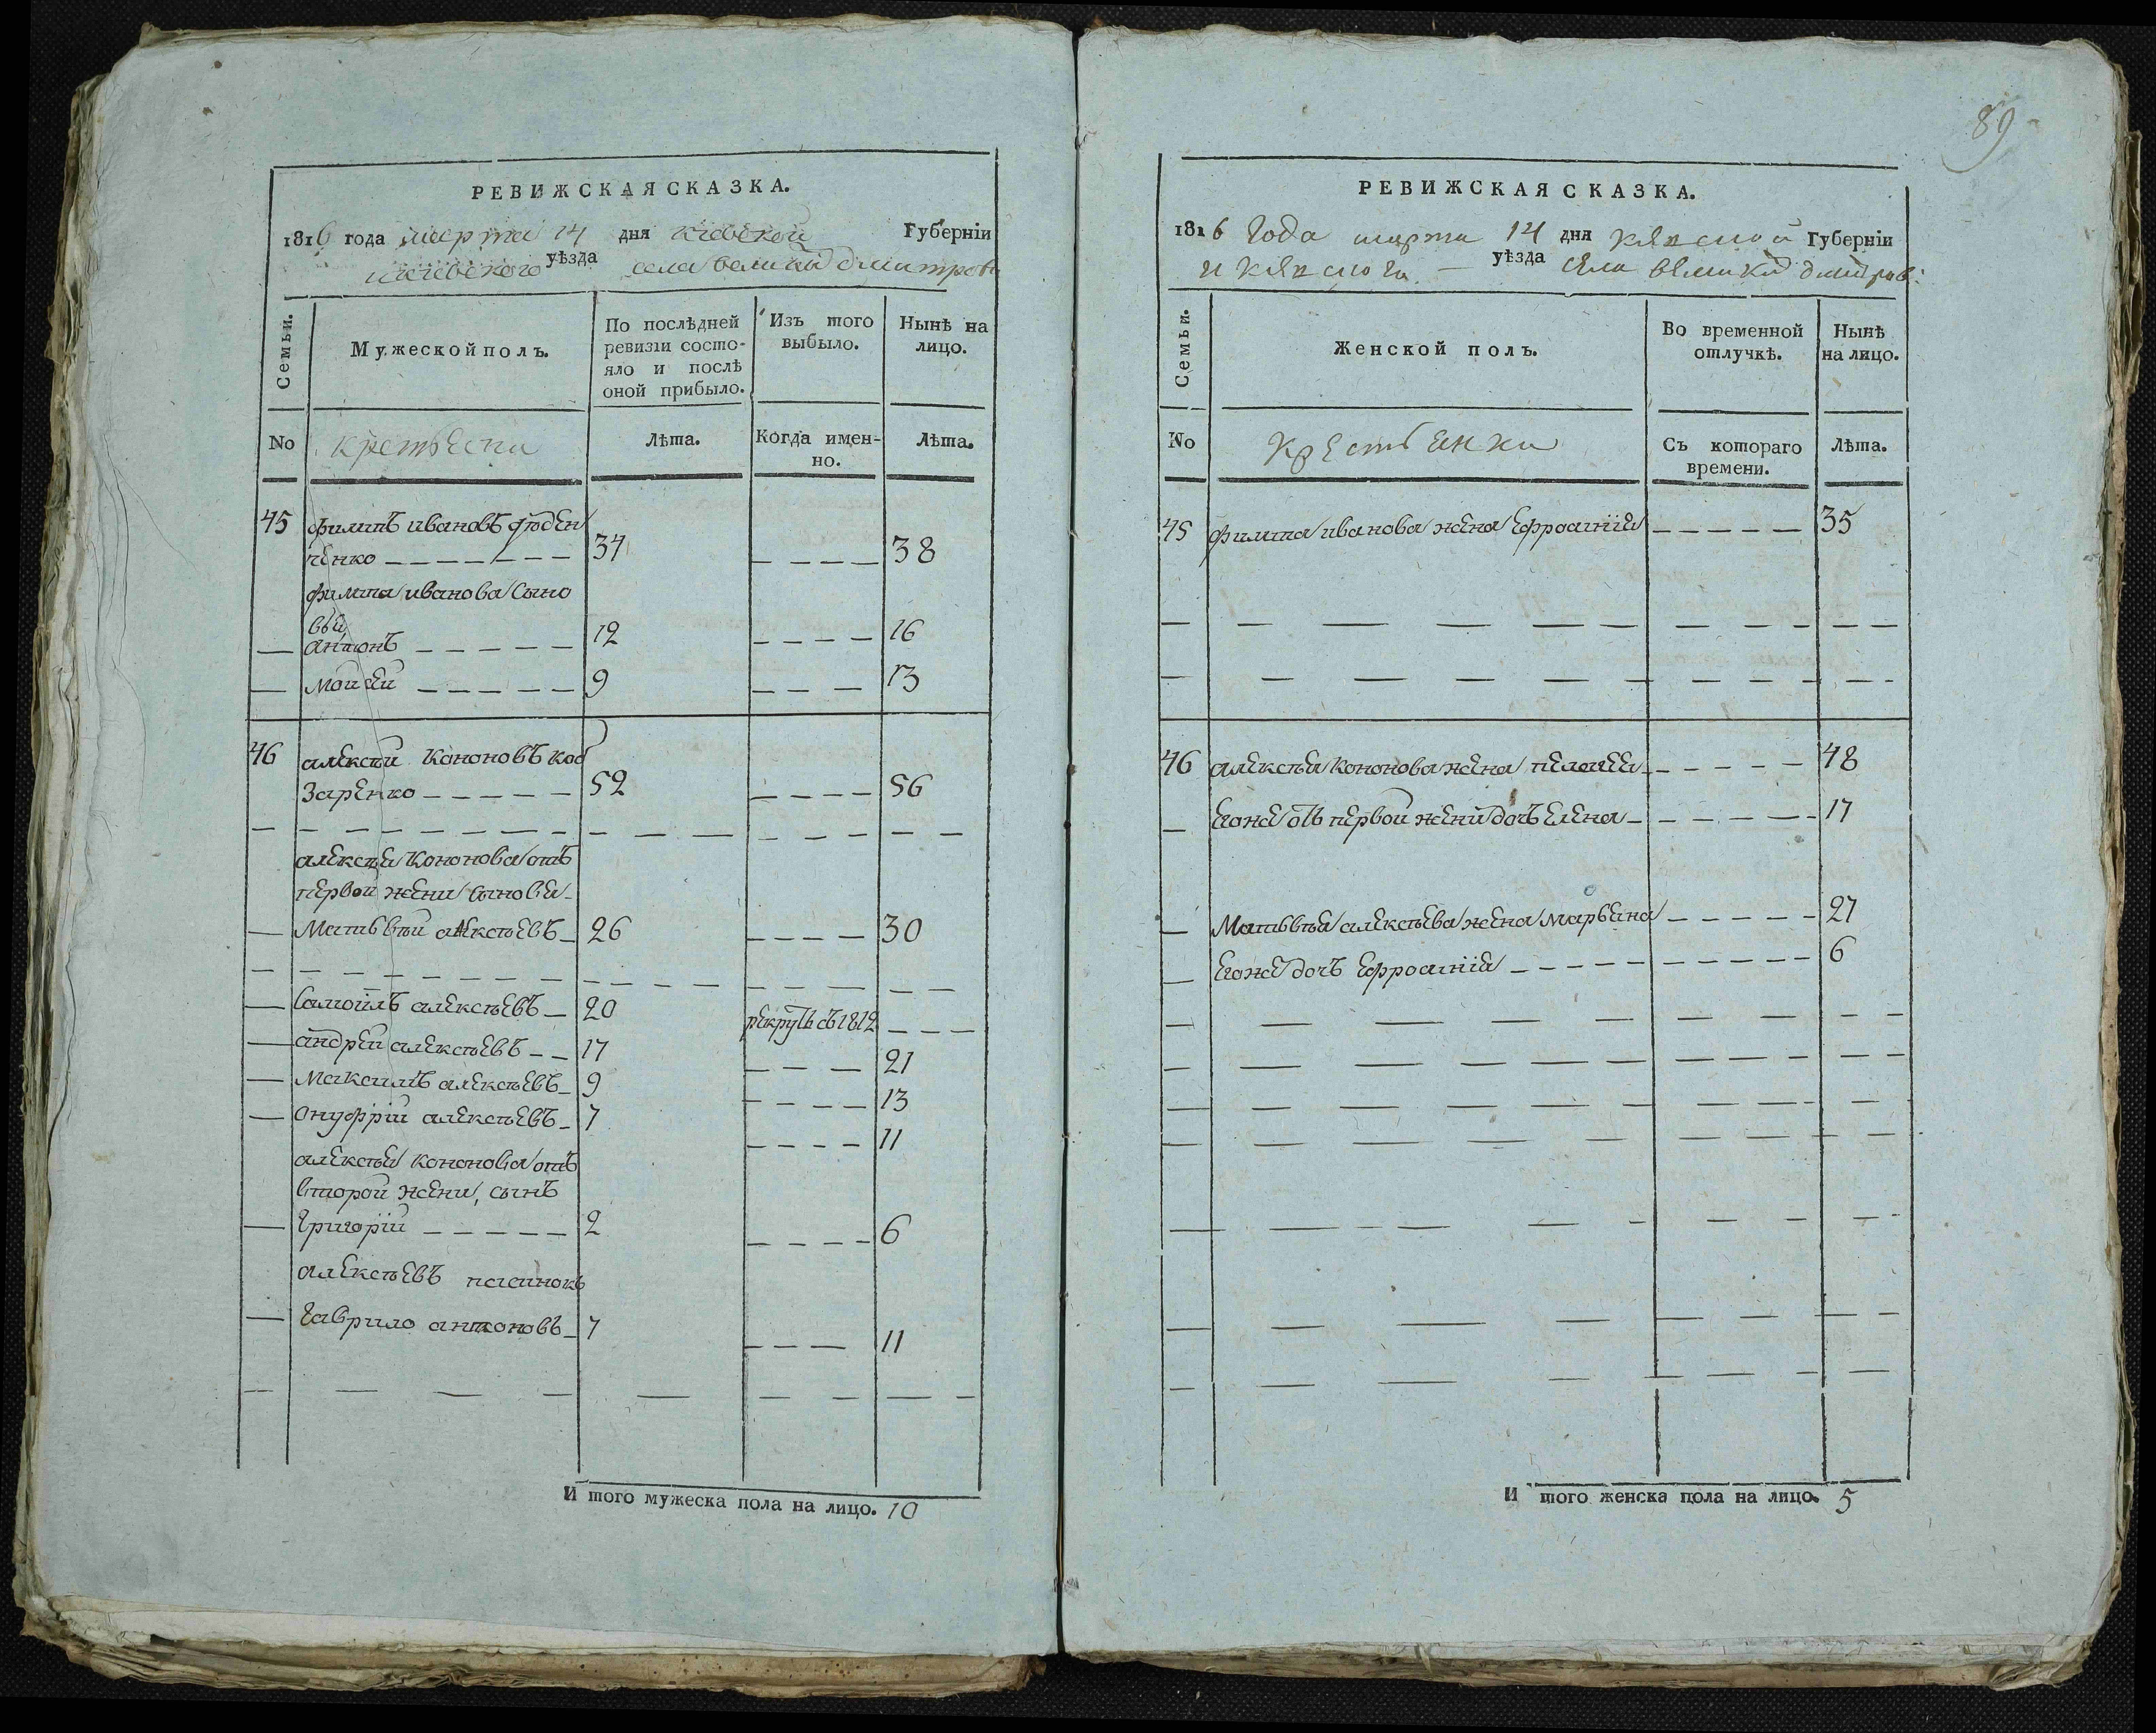 РЕВИЖСКАЯ СКАЗКА.
1816 года марта 14 дня киевской Губерніи
киевского уѣзда села велики дмитрови
Семьи.
Мужеской полъ.
По послѣдней ревизіи состояло и послѣ оной прибыло.
Изъ того выбыло.
Нынѣ на лицо.
No
крестьеня
Лѣта.
Когда именно.
Лѣта.
45 филипъ ивановъ
ченко 34 38
филипа иванова сыно
вья
антонъ 12 16
мойсей 9 13
46 алексѣй кононовъ коб
заренко 52 56
алексѣя кононова отъ
первой жени сыновья
матьвѣй алексѣевъ 26 30
самойлъ алексѣевъ 20 рекрутъ съ 1812
андрей алексѣевъ 17 21
максимъ алексѣевъ 9 13
онуфрій алексѣевъ 7 11
алексѣя кононова отъ
второй жени, сынъ
григорій 2 6
алексѣевъ пасинокъ
гаврило антоновъ 7 11
И того мужеска пола на лицо. 10
89
РЕВИЖСКАЯ СКАЗКА.
1816 года марта 14 дня киевской Губерніи
и киевского уѣзда села велики дмитров:
Семьи.
Женской полъ.
Во временной отлучкѣ.
Нынѣ на лицо.
No
крестьянки
Съ котораго времени.
Лѣта.
45 филипа иванова жена ефросинія 35
46 алексѣя кононова жена пелагея 48
егоже отъ первой жени дочъ елена 17
матьвѣя алексѣева жена марьяна 27
егоже дочъ ефросинія 6
И того женска пола на лицо. 5